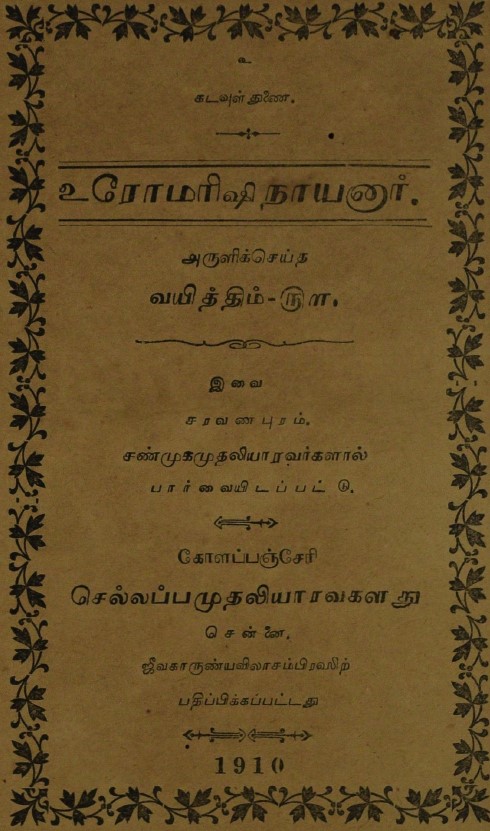 உ
கடவுள் துணை.
உரோமரிஷி நாயனார்.
அருளிச்செய்த
வயித்திம்-நூள.
இவை
சரவணபுரம்.
சண்முகமுதலியாரவர்களால்
பார்வையிடப்பட்டு.
கோளப்பஞ்சேரி
செல்லப்பமுதலியாரவகளது
சென்னை,
ஜீவகாருண்யவிலாசம்பிரஸிற்
பதிப்பிக்கப்பட்டது
1910